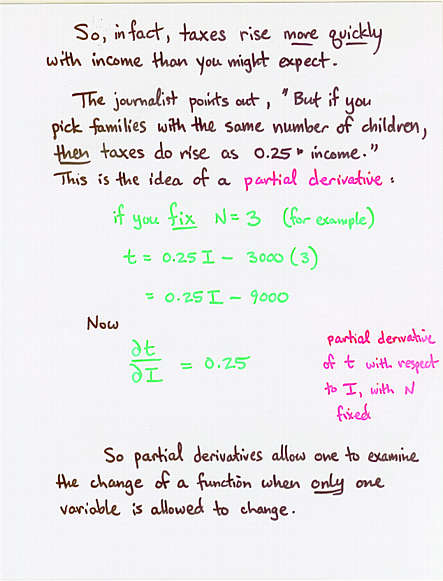 So, in fact, taxes rise more quickly
with income than you might expect.
The journalist points out, "But if you
pick families with the same number of children,
then taxes do rise as 0.25 * income."
This is the idea of a partial derivative:
if you fix N = 3 (for example)
t = 0.25 I - 3000 (3)
= 0.25 I - 9000
Now
∂t/∂I = 0.25
partial derivative
of t with respect
to I, with N
fixed
So partial derivatives allow one to examine
the change of a function when only one
variable is allowed to change.